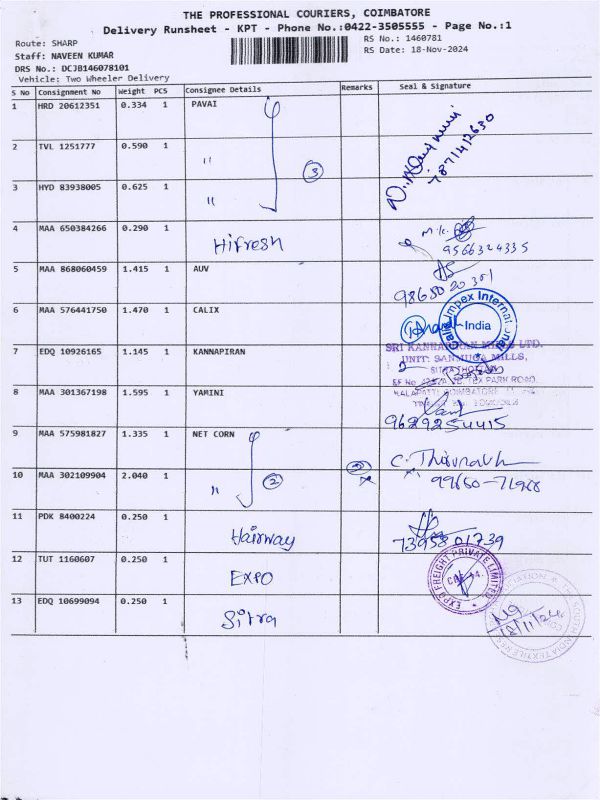 THE PROFESSIONAL COURIERS, COIMBATORE
Delivery Runsheet - KPT - Phone No.:0422-3505555 - Page No.:1
Route: SHARP
RS No.: 1460781
Staff: NAVEEN KUMAR
RS Date: 18-Nov-2024
DRS No.: DCJB146078101
Vehicle: Two Wheeler Delivery
S No Consignment No Weight PCS Consignee Details Remarks Seal & Signature
1 HRD 20612351 0.334 1 PAVAI
7871412630
2 TVL 1251777 0.590 1 "
3
3 HYD 83938005 0.625 1 "
4 MAA 650384266 0.290 1 Hifresh
9566324335
5 MAA 868060459 1.415 1 AUV
98650 20301
6 MAA 576441750 1.470 1 CALIX
Impex International
India
7 EDQ 10926165 1.145 1 KANNAPIRAN
SRI KANNAPIRAN MILLS LTD.
UNIT: SANMUGA MILLS,
8 MAA 301367198 1.595 1 YAMINI
9629254415
9 MAA 575981827 1.335 1 NET CORN
10 MAA 302109904 2.040 1 " 2
2
99650-71968
11 PDK 8400224 0.250 1 Hairway
7395801739
12 TUT 1160607 0.250 1 EXPO
EXPO FREIGHT PRIVATE LIMITED
13 EDQ 10699094 0.250 1 Sitra
18/11/24